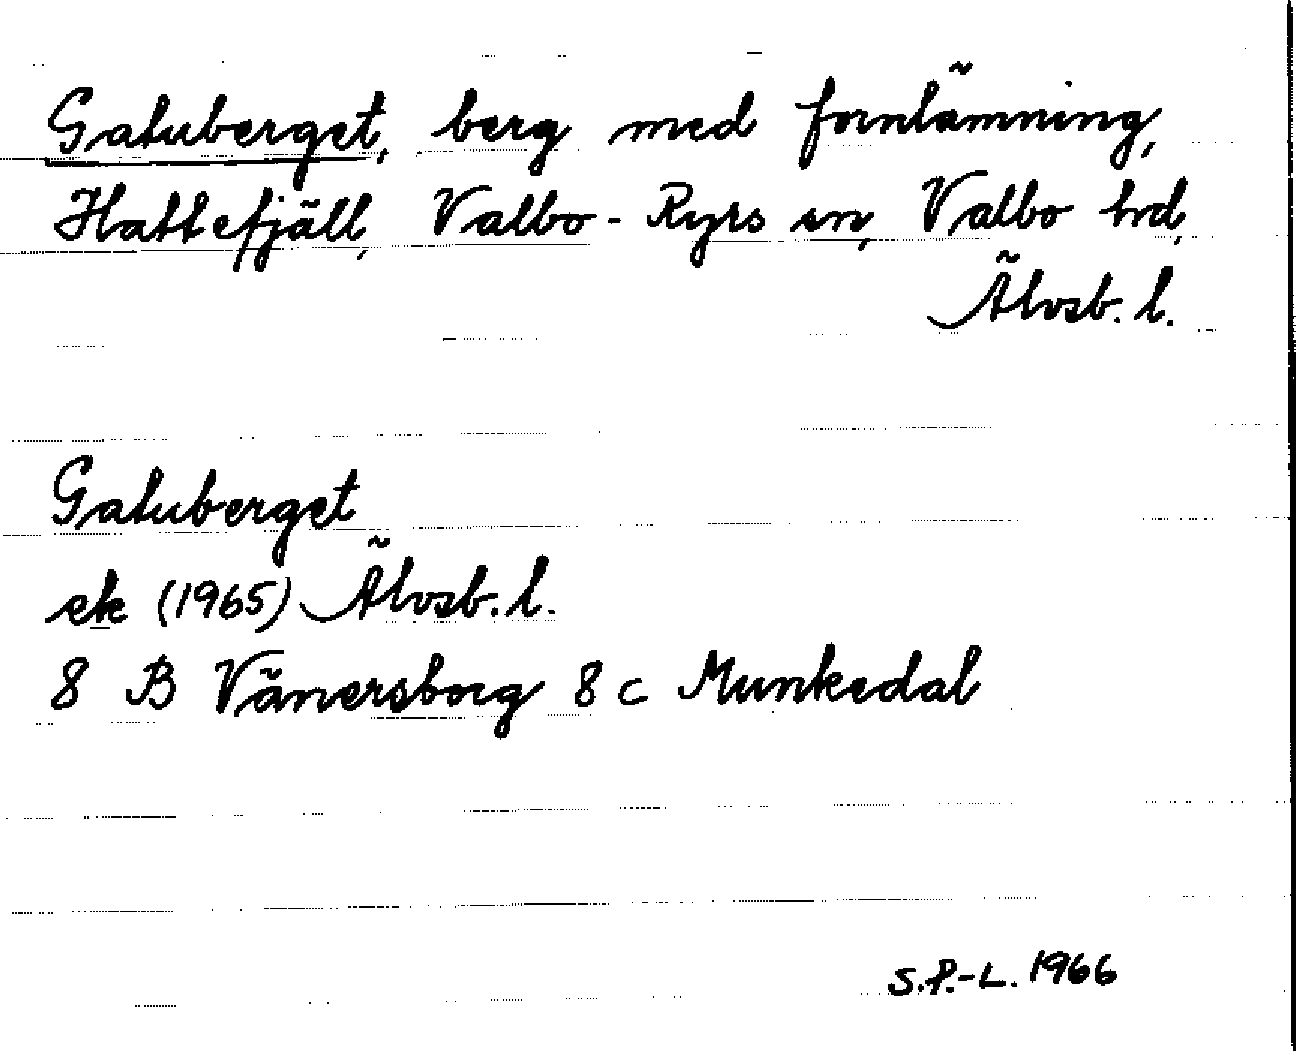 Gatuberget, berg med fornlämning,
Hattefjäll, Valbo-Ryrs sn, Valbo hd,
Älvsb. l.
Gatuberget
ek (1965) Älvsb. l.
8 B Vänersborg 8 c Munkedal
S.P.-L. 1966